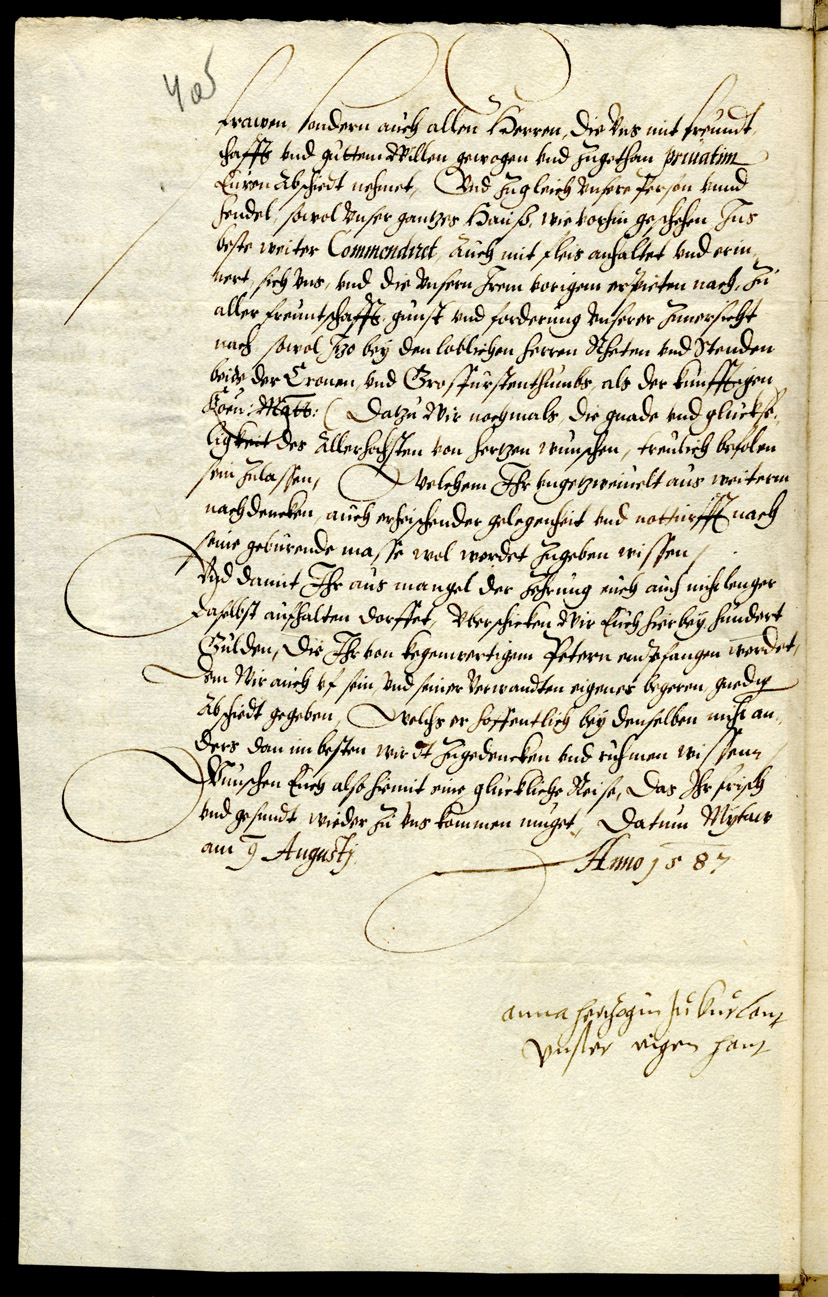 405
frawen, sondern auch allen Herren, die Uns mit freundt,
schafft und guttem Willen gewogen und zugethan priuatim
Euren Abschiedt nehmet, Und zugleich Unsere Person unnd
hendel, sowol Unser gantzes Hauß, wie vorhin geschehen Ins
beste weiter Commendiret, Auch mit fleis anhaltet und erin,
nert, sich Uns, und die Unsern Irem vorigem erbieten nach, zu
aller freuntschafft, gunst und forderung Unserer Zuversicht
nach sowol Itzo bey den loblichen Herren Rheten und Stenden
beide der Cronen und Grosfurstenthumbs als der kunfftigen
Kön: Matt: (Datzu Wir nochmals die gnade und gluckse,
ligkeit des Allerhochsten von hertzen wunschen, treulich befolen
sein zulassen, Welchem Ihr ungezweiuelt aus weiterm
nachdencken, auch erheischender gelegenheit und notturfft nach
seine geburende masse wol werdet zugeben wissen,
Und damit Ihr aus mangel der Zehrung euch auch nicht lenger
daselbst aufhalten dorffet, Uberschicken Wir Euch hierbey hundert
Gulden, Die Ihr von kegenwertigem Petern entpfangen werdet,
Dem Wir auch uf sein und seiner Verwandten eigenes begeren, gnedig
Abschiedt gegeben, Welchs er hoffentlich bey denselben nicht an,,
ders dan im besten wirdt zugedencken und ruhmen wissen,
Wunschen Euch also hiemit eine gluckliche Reise, Das Ihr frisch
und gesundt wieder zu Uns kommen muget, Datum Mytaw
am 9 Augustj Anno 1587
anna hertzogin zu kurlant
unster eigen hant